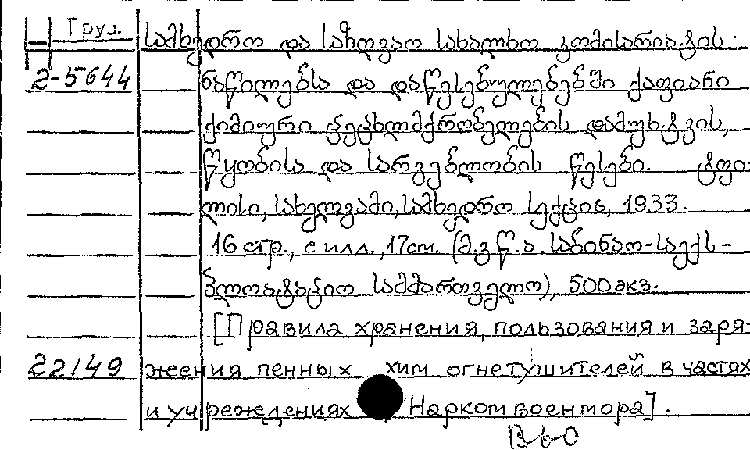 Груз.
სამხედრო და საზღვაო სახალხო კომისარიატის
2-5644 ნაწილებსა და დაწესებულებებში ქაფიანი
ქიმიური ცეცხლმქრობელების დამუხტვის,
წყობისა და სარგებლობის წესები. ტფი-
ლისი, სახელგამი, სამხედრო სექცია, 1933.
16 стр., с илл., 17см. (მ.გ.წ.ა. საბინაო-საექს-
პლოატაციო სამმართველო), 500 экз.
[Правила хранения, пользования и заря-
22149 жения пенных хим огнетушителей в частях
и учреждениях Наркомвоенмора].